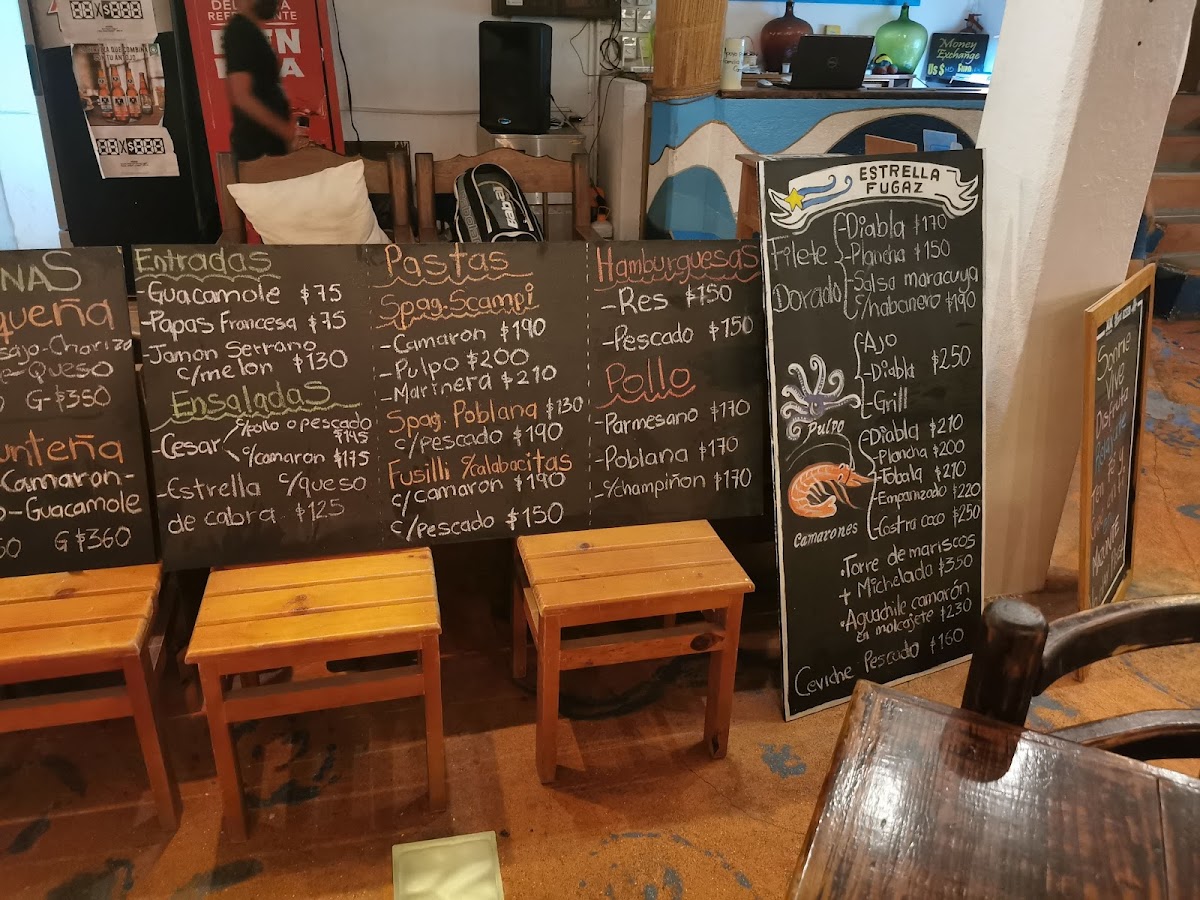 REFRESCANTE
Money
Exchange
US $
NAS
queña
Chorizo
Queso
G-$350
unteña
-Camaron-
-Guacamole
G $360
Entradas
-Guacamole $75
-Papas Francesa $75
-Jamon Serrano
c/melon $130
Ensaladas
-Cesar
c/pollo o pescado
$145
c/camaron $175
-Estrella c/queso
de cabra $125
Pastas
Spag. Scampi
-Camaron $190
-Pulpo $200
-Marinera $210
Spag. Poblana $130
c/pescado $190
Fusilli c/calabacitas
c/camaron $190
c/pescado $150
Hamburguesas
-Res $150
-Pescado $150
Pollo
-Parmesano $170
-Poblana $170
-c/champiñon $170
ESTRELLA
FUGAZ
Filete
Dorado
-Diabla $170
-Plancha $150
-Salsa maracuya
c/habanero $190
Pulpo
-Ajo
-Diabla $250
-Grill
Camarones
-Diabla $210
-Plancha $200
-Tobala $210
-Empanizado $220
-Costra coco $250
•Torre de mariscos
+ Michelada $350
•Aguachile camarón
en molcajete $230
Ceviche Pescado $160
Sonrie
Vive
Disfruta